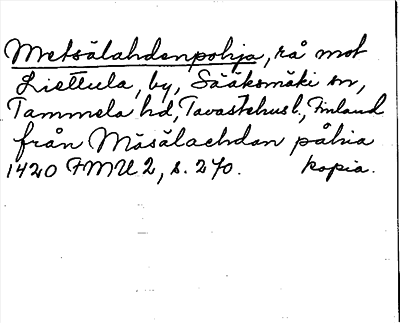 Metsälahdenpohja, rå mot
Liettula, by, Sääksmäki sn,
Tammela hd, Tavastehus l., Finland
från Mäsälachdan påhia
1420 FMU 2, s. 270. kopia.